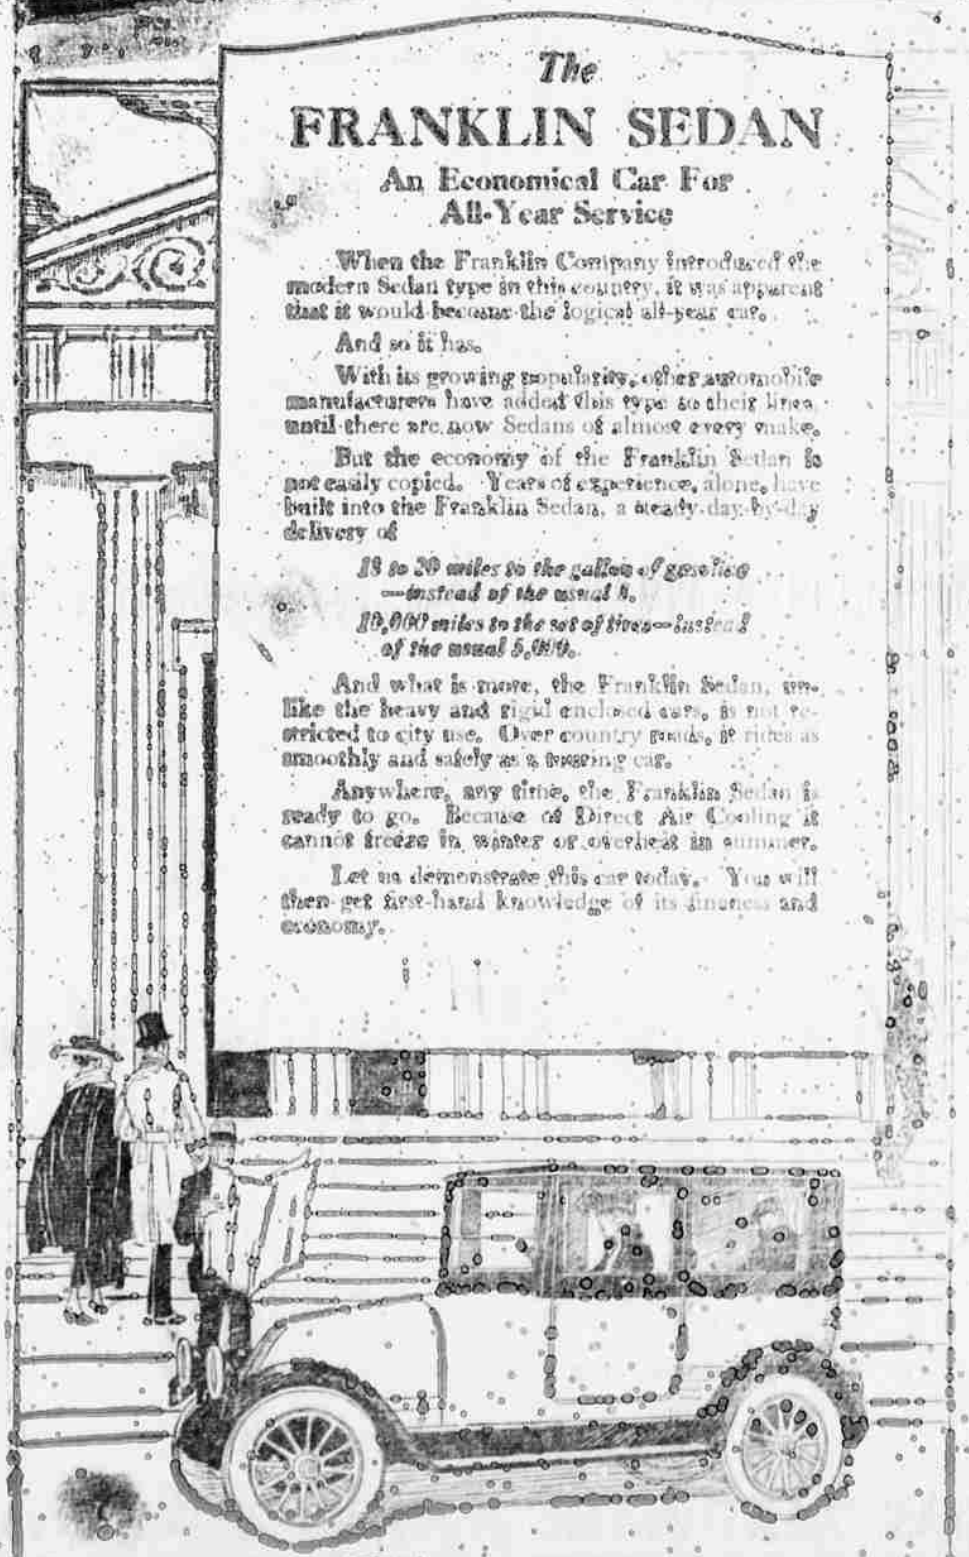 The
FRANKLIN SEDAN
An Economical Car For
All-Year Service
When the Franklin Company introduced the
modern Sedan type in this country, it was apparent
that it would become the logical all-year car.
And so it has.
With its growing popularity, other automobile
manufacturers have added this type to their lines
until there are now Sedans of almost every make.
But the economy of the Franklin Sedan is
not easily copied. Years of experience, alone, have
built into the Franklin Sedan, a steady day-by-day
delivery of
to 20 miles to the gallon of gasoline
—instead of the usual
10,000 miles to the set of tires—instead
of the usual 5,000.
And what is more, the Franklin Sedan, un-
like the heavy and rigid enclosed cars, is not re-
stricted to city use. Over country roads, it rides as
smoothly and safely as a touring car.
Anywhere, any time, the Franklin Sedan is
ready to go. Because of Direct Air Cooling it
cannot freeze in winter or overheat in summer.
Let us demonstrate this car today. You will
then get first-hand knowledge of its fineness and
economy.